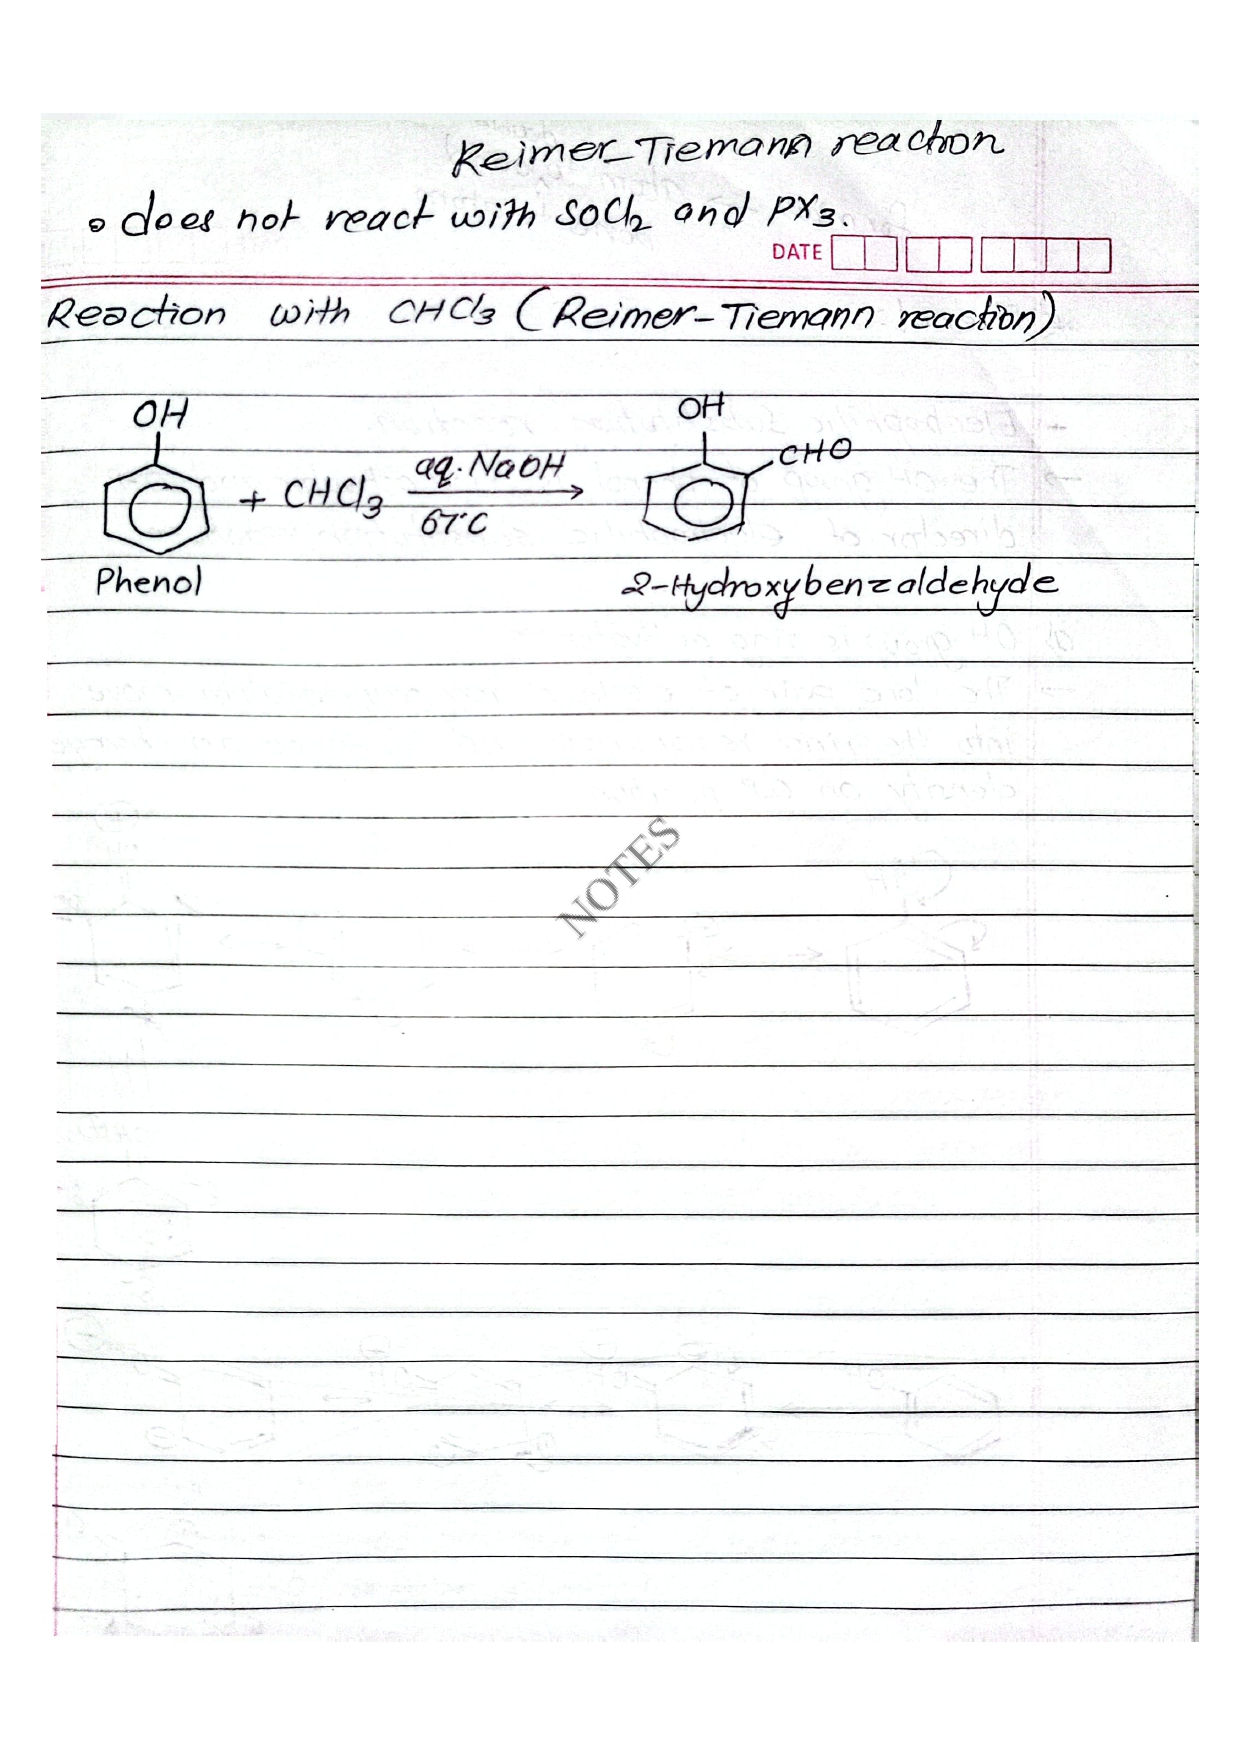 Reimer-Tiemann reaction
• does not react with SOCl₂ and PX₃.
DATE
Reaction with CHCl₃ (Reimer-Tiemann reaction)
OH OH
CHO
+ CHCl₃ aq. NaOH
67°C
Phenol 2-Hydroxybenzaldehyde
NOTES